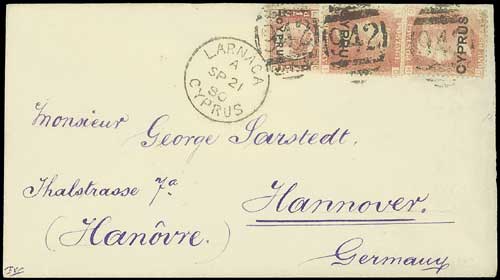 CYPRUS CYPRUS CYPRUS
942 942
LARNACA
A
SP 21
80
CYPRUS
Monsieur George Sarstedt.
Thalstrasse 7a Hannover.
(Hanôvre.) Germany